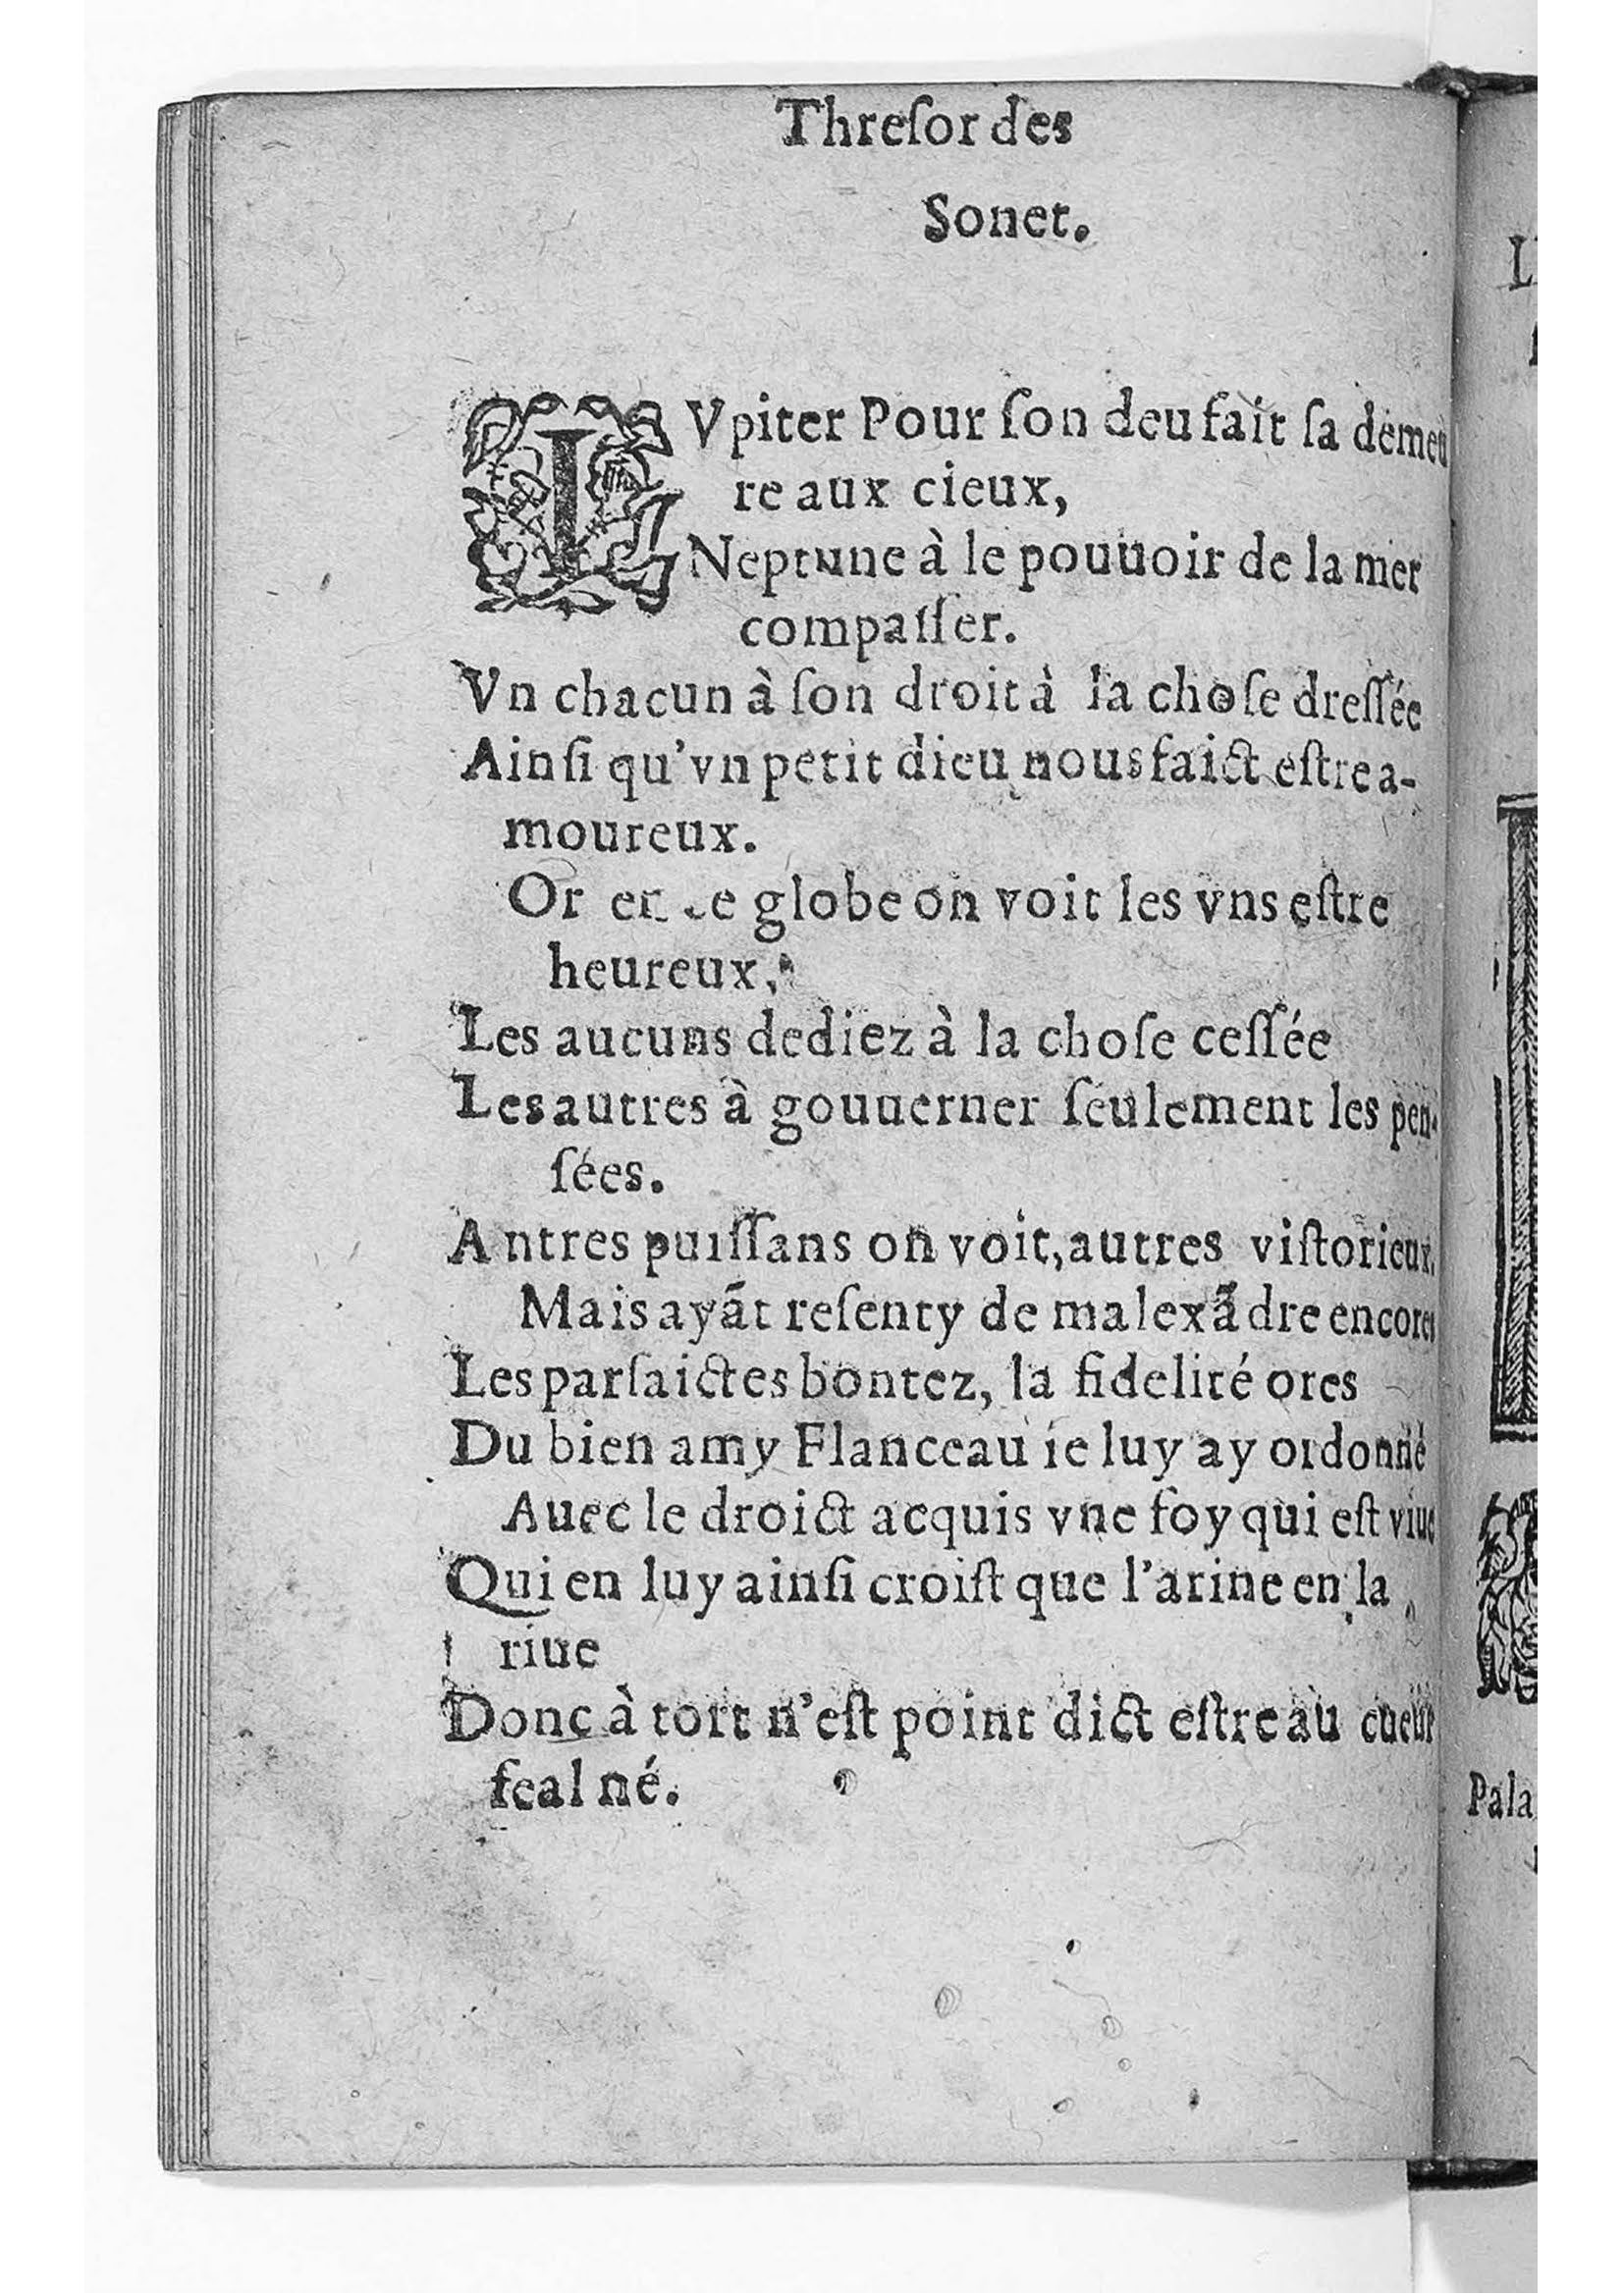 Threſor des
Sonet.
IVpiter Pour ſon deu fait ſa demeu
re aux cieux,
Neptune à le pouuoir de la mer
compaſſer.
Vn chacun à ſon droit à la choſe dreſſée
Ainſi qu'vn petit dieu nous faict eſtre a-
moureux.
Or en ce globe on voit les vns eſtre
heureux,
Les aucuns dediez à la choſe ceſſée
Les autres à gouuerner ſeulement les pen-
ſées.
Antres puiſſans on voit, autres viſtorieux,
Mais ayãt reſenty de malexãdre encores
Les parſaictes bontez, la fidelité ores
Du bien amy Flanceau ie luy ay ordonné
Auec le droict acquis vne foy qui eſt viue
Qui en luy ainſi croiſt que l'arine en la
riue
Donc à tort n'eſt point dict eſtre au cueur
feal né.
Pala